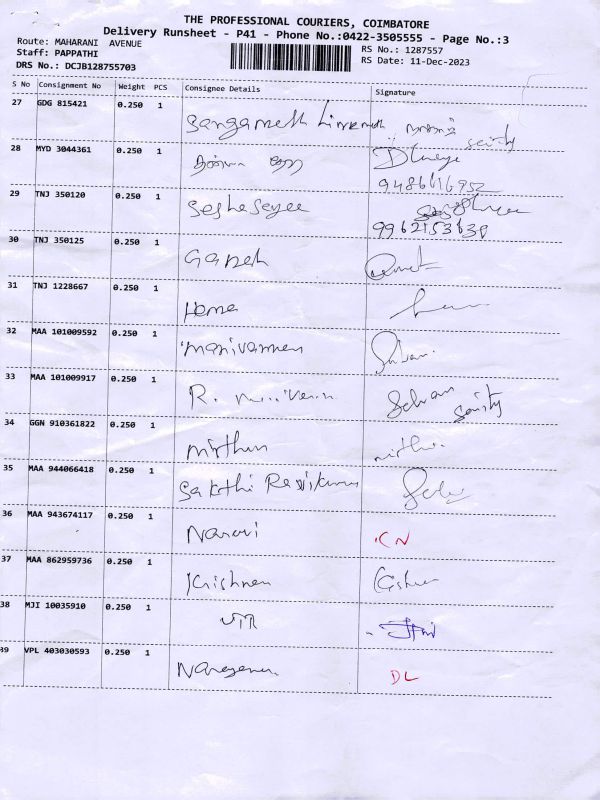 THE PROFESSIONAL COURIERS, COIMBATORE
Delivery Runsheet - P41 - Phone No.:0422-3505555 - Page No.:3
Route: MAHARANI AVENUE RS No.: 1287557
Staff: PAPPATHI RS Date: 11-Dec-2023
DRS No.: DCJB128755703
S No Consignment No Weight PCS Consignee Details Signature
27 GDG 815421 0.250 1
28 MYD 3044361 0.250 1
9486616952
29 TNJ 350120 0.250 1 Sesha Sayee
9962153639
30 TNJ 350125 0.250 1 Ganesh
31 TNJ 1228667 0.250 1 Hema
32 MAA 101009592 0.250 1 manivannen
33 MAA 101009917 0.250 1 R. Selvam
34 GGN 910361822 0.250 1 mithun
35 MAA 944066418 0.250 1 Sakthi
36 MAA 943674117 0.250 1 CN
37 MAA 862959736 0.250 1 Krishnan
38 MJI 10035910 0.250 1
39 VPL 403030593 0.250 1 Narayanan DL